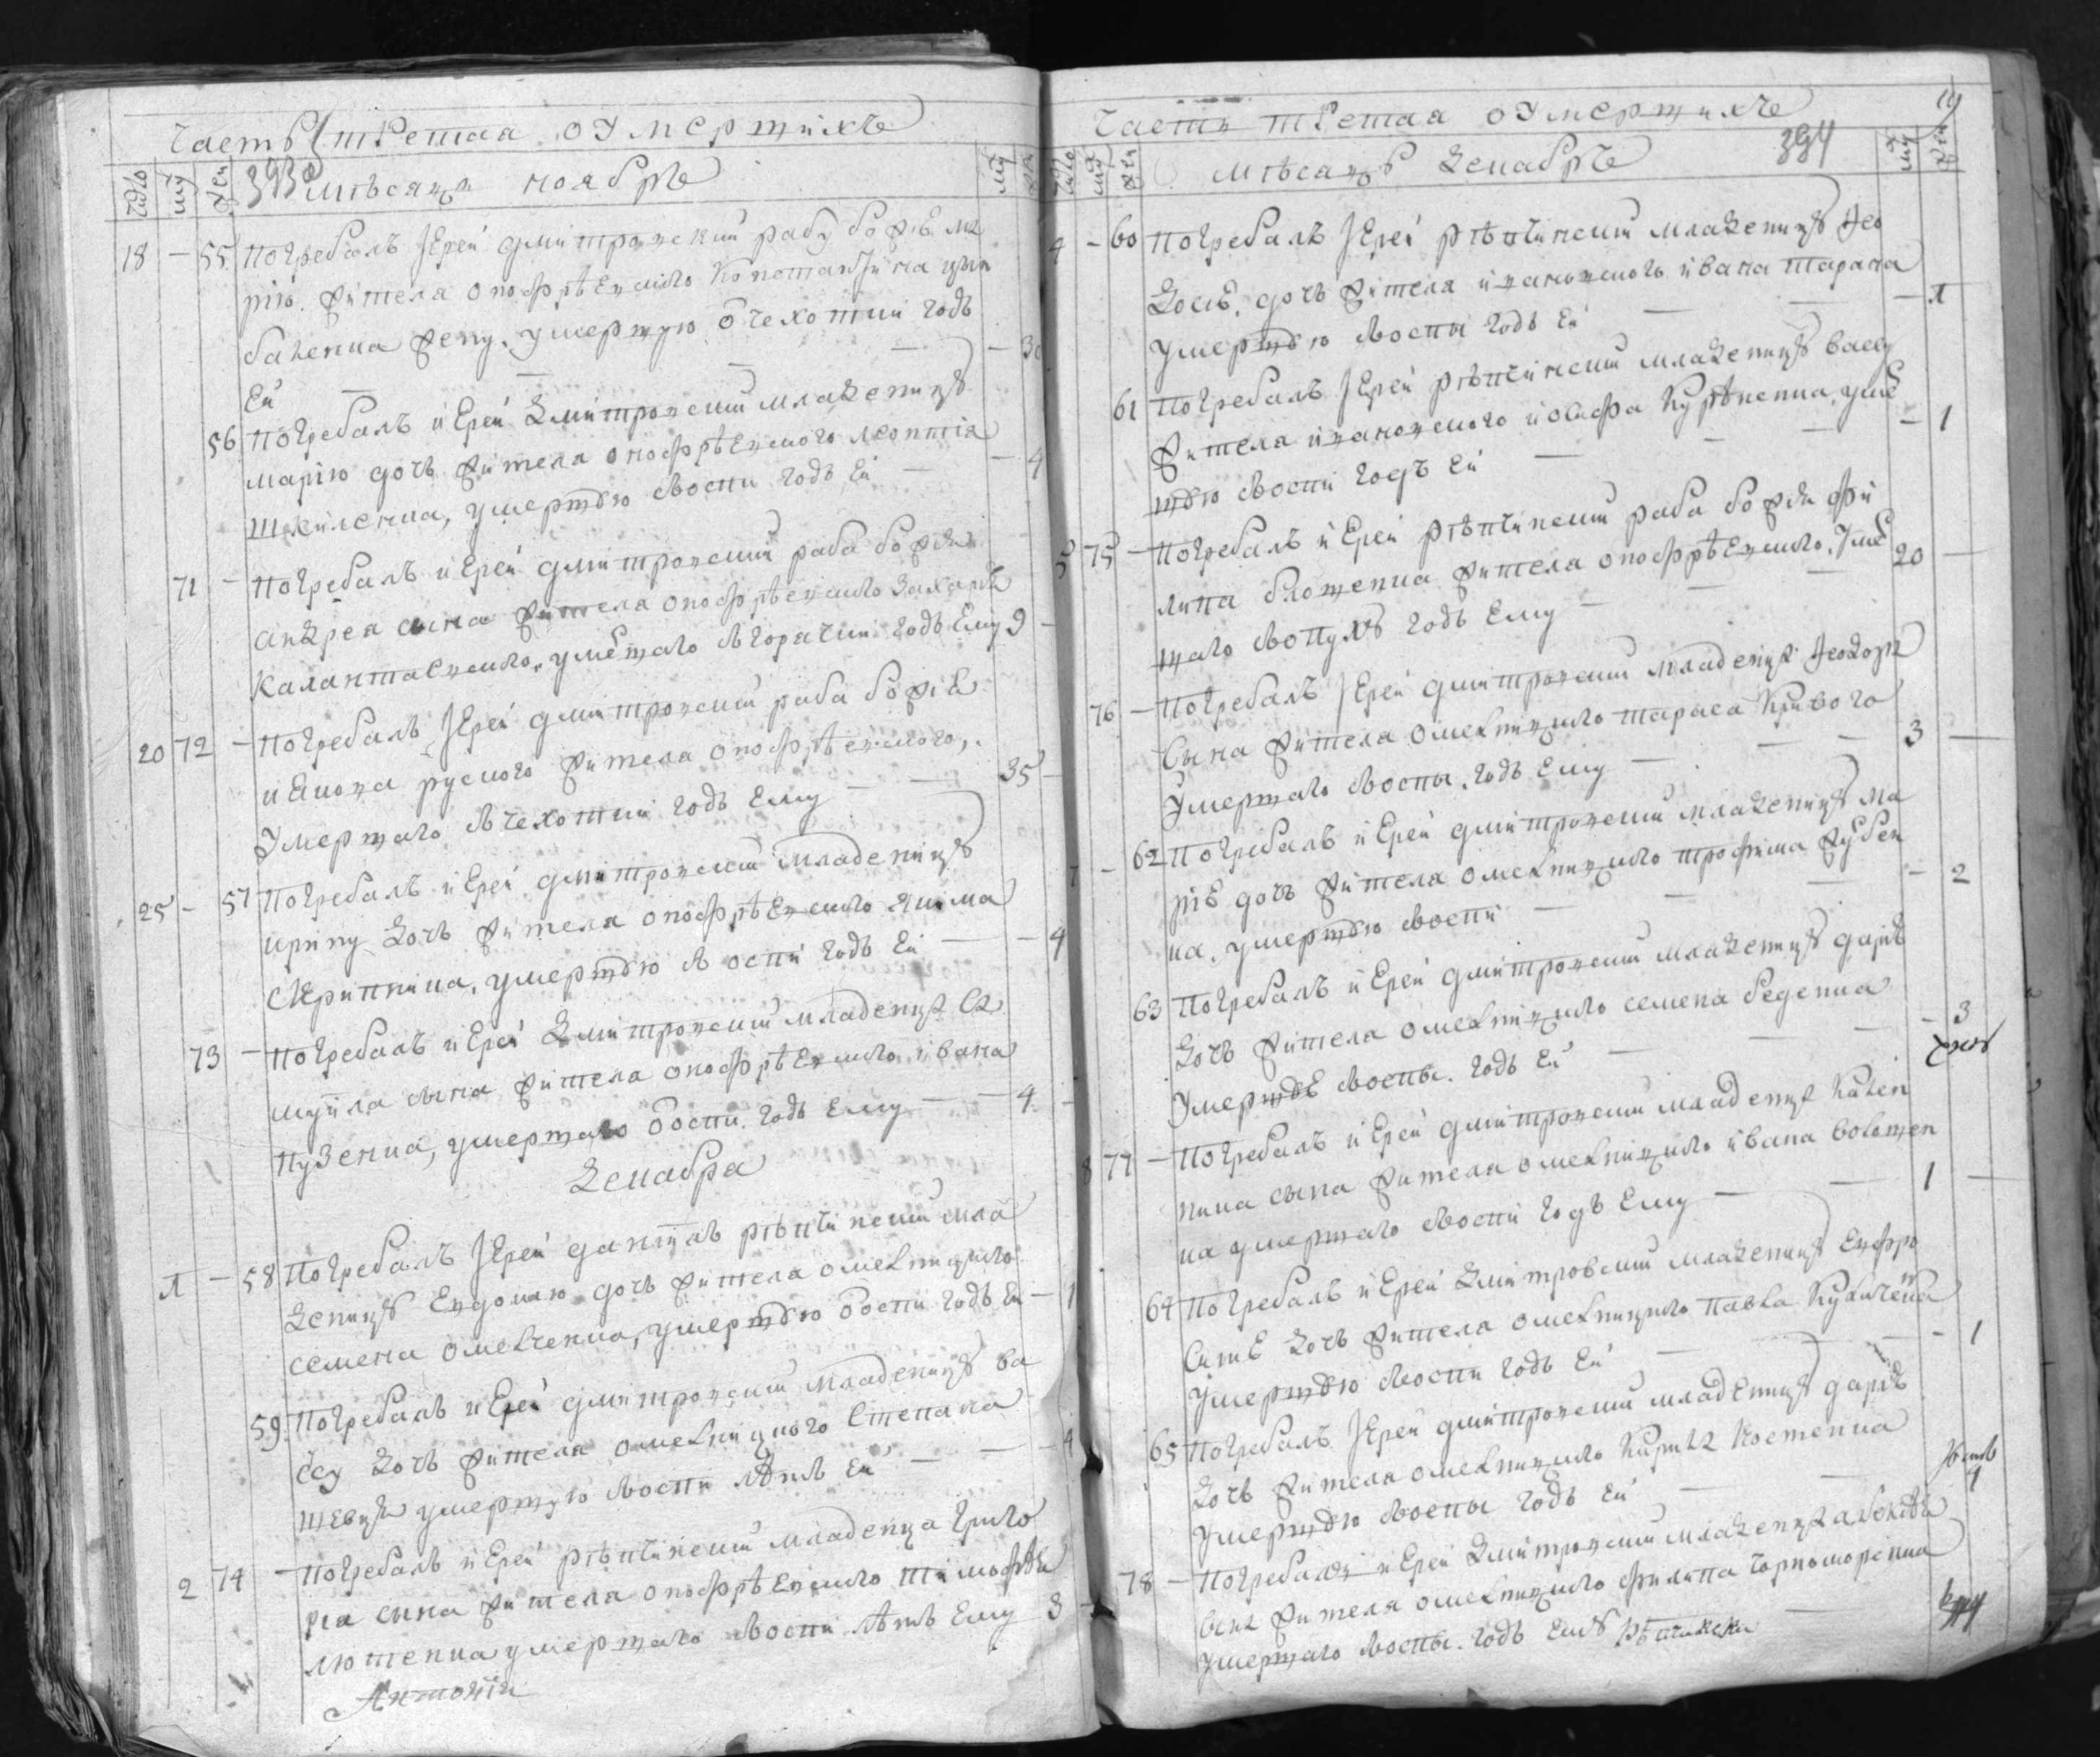 Часть третая о умертихъ
число муж жен 393 мѣсяца ноября му
18 – 55 погребалъ Iерей дмитровский рабу божiѣ ма
рiю жителя онофрѣевского Константина цим
баленка жену, умертую от чехоткы годъ
Ей – 30
56 погребалъ иЕрей дмитровский младеницу
марiю дочь жителя онофрѣевского леонтiя
шкиленка, умертвю отвоспы годъ Ей – 4
71 – погребалъ иЕрей дмитровский раба божiя
андрея сына жителя онофрѣевского захарiя
калантаевского, умертаго отгорячки годъ Ему 9
20 72 – погребалъ Iерей дмитровский раба божiЕ
иЯкова руского жителя онофрѣевского,
умертаго отчехотки годъ Ему – 35 –
25 – 57 погребалъ иЕрей дмитровский младеницу
ирину дочь жителя онофрѣевского якима
скрипника, умертвю от оспы годъ Ей – 4
73 – погребалъ иЕрей дмитровский младенца са
муила сына жителя онофрѣевского ивана
пузенка, умертаго от оспы годъ Ему – 4 –
декабра
1 – 58 погребалъ Iерей данiилъ рѣпчинский мла
деницу Евдокию дочь жителя омелницкого
семена омелченка, умертвю от оспы годъ Ей – 1
59 погребалъ иЕрей дмитровский младеницу ва
ссу дочь жителя омелницкого степана
шевця умертую отвоспы лѣтъ Ей – 4
2 74 – погребалъ иЕрей рѣпчинский младенца григо
рiя сына жителя онофрѣевского тимофѣя
лютенка умертаго отвоспы лѣтъ Ему 3 –
Антонiй
Части третая о умертихъ 19
число муж жен мѣсяцъ декабрь 394 муж жен
4 – 60 погребалъ Iерей рѣпчинский младеницу фео
досiЕ, дочь жителя ивановского ивана тарана
умертвю отвоспы годъ Ей – 1
61 погребалъ Iерей рѣпчинский младеницу вассу
жителя ивановского иосифа курѣненка, уме
ртвю отвоспы годъ Ей – 1
5 75 – погребалъ иЕрей рѣпчинский раба божiя фи
липа жителя онофрѣевского, уме
ртаго годъ Ему – 20 –
76 – погребалъ Iерей дмитровский младенца феодора
сына жителя омелницкого тараса кривого
умертаго отвоспы, годъ Ему – 3 –
7 – 62 погребалъ иЕрей дмитровский младеницу ма
рiЕ дочь жителя омелницкого трофима
ка, умертвю отвоспы – 2
63 погребалъ иЕрей дмитровский младеницу дарiЕ
дочь жителя омелницкого семена беденка
умертвЕ отвоспы. годъ Ей – 3
8 77 – погребалъ иЕрей дмитровский младенца
сына жителя омелницкого ивана
ка умертаго отвоспы годъ Ему – 1 –
64 погребалъ иЕрей дмитровский младеницу Евфро
синЕ дочь жителя омелницкого павла
умертвю отвоспы годъ Ей – 1
65 погребалъ Iерей дмитровский младеницу дарiЕ
дочь жителя омелницкого кирила костенка
умертвю отвоспы годъ Ей – 4
78 – погребалъ иЕрей дмитровский младенца
сына жителя омелницкого филипа чорноморенка
умертаго отвоспы. годъ Ему